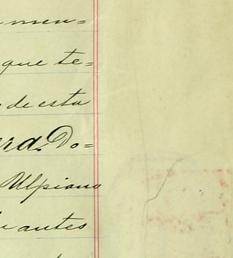 men=
que te-
de esta
Do=
Ulpiano
antes